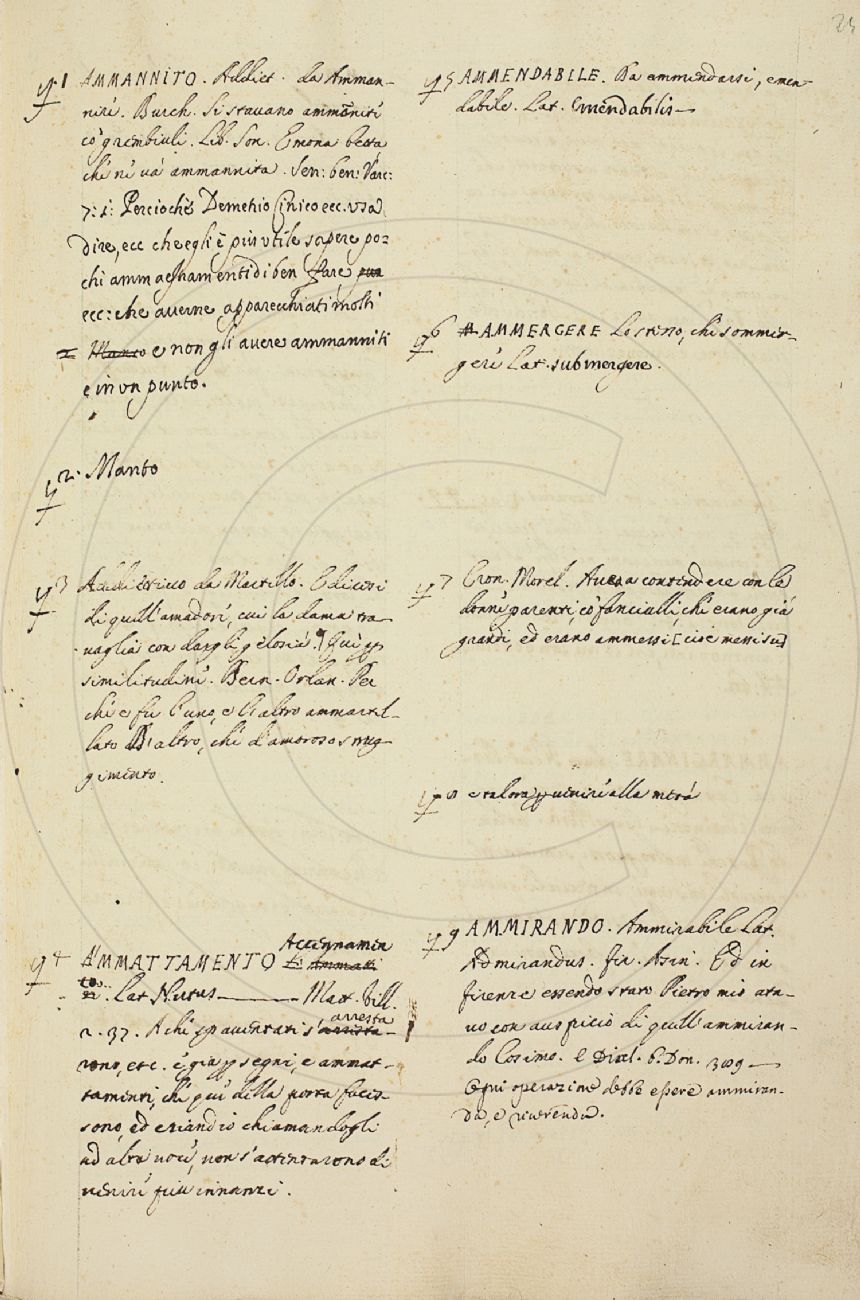 25
1 AMMANNITO. Addiet. da Amman-
nire. Burch. Si stavano ammãniti
cō grembiuli. Lib. Son. E mona
che ne va ammannita. Sen: ben: Varc:
7: 1: Perciochè Demetrio Cinico ecc. usa
dire, ecc che egli è più utile sapere po=
chi ammaestramenti di ben fare
ecc: che averne apparecchiati molti
Manto e non gli avere ammanniti
e in un punto.
2. Manto
3 Addiettivo da Martello. E dicesi
di quell'amadore, cui la dama tra-
vaglia con dargli gelosia. Qui p
similitudine. Bern. Orlan. Per
che e fu l'uno, e l'altro ammartel-
lato D'altro, che d'amoroso strug-
gimento.
4 AMMATTAMENTO Accennamen
to. Lat Nutus Matt. Vill.
2. 37. A chi spaventati s'arresta-
rono, etc. è già p segni, e ammat-
tamenti, che più della porta faces-
sono, ed eziandio chiamandogli
ad alta voce, non s'attentarono di
venire più innanzi.
5 AMMENDABILE. Da ammendarsi, emen-
dabile. Lat. Emendabilis
6 AMMERGERE Lo stesso, che sommer-
gere Lat. submergere.
7 Cron. Morel. Avea contendere con le
donne parenti, cō fanciulli, che erano già
grandi, ed erano ammessi [cioè messi su]
8 e talora p venire alla metà
9 AMMIRANDO. Ammirabile Lat.
Admirandus. fir. Asin. Ed in
firenze essendo stato Pietro mio ata-
vo con auspicio di quell'ammiran-
do Cosimo. E Disc. 309
Ogni operazione debbe essere ammiran-
da, e riverenda.